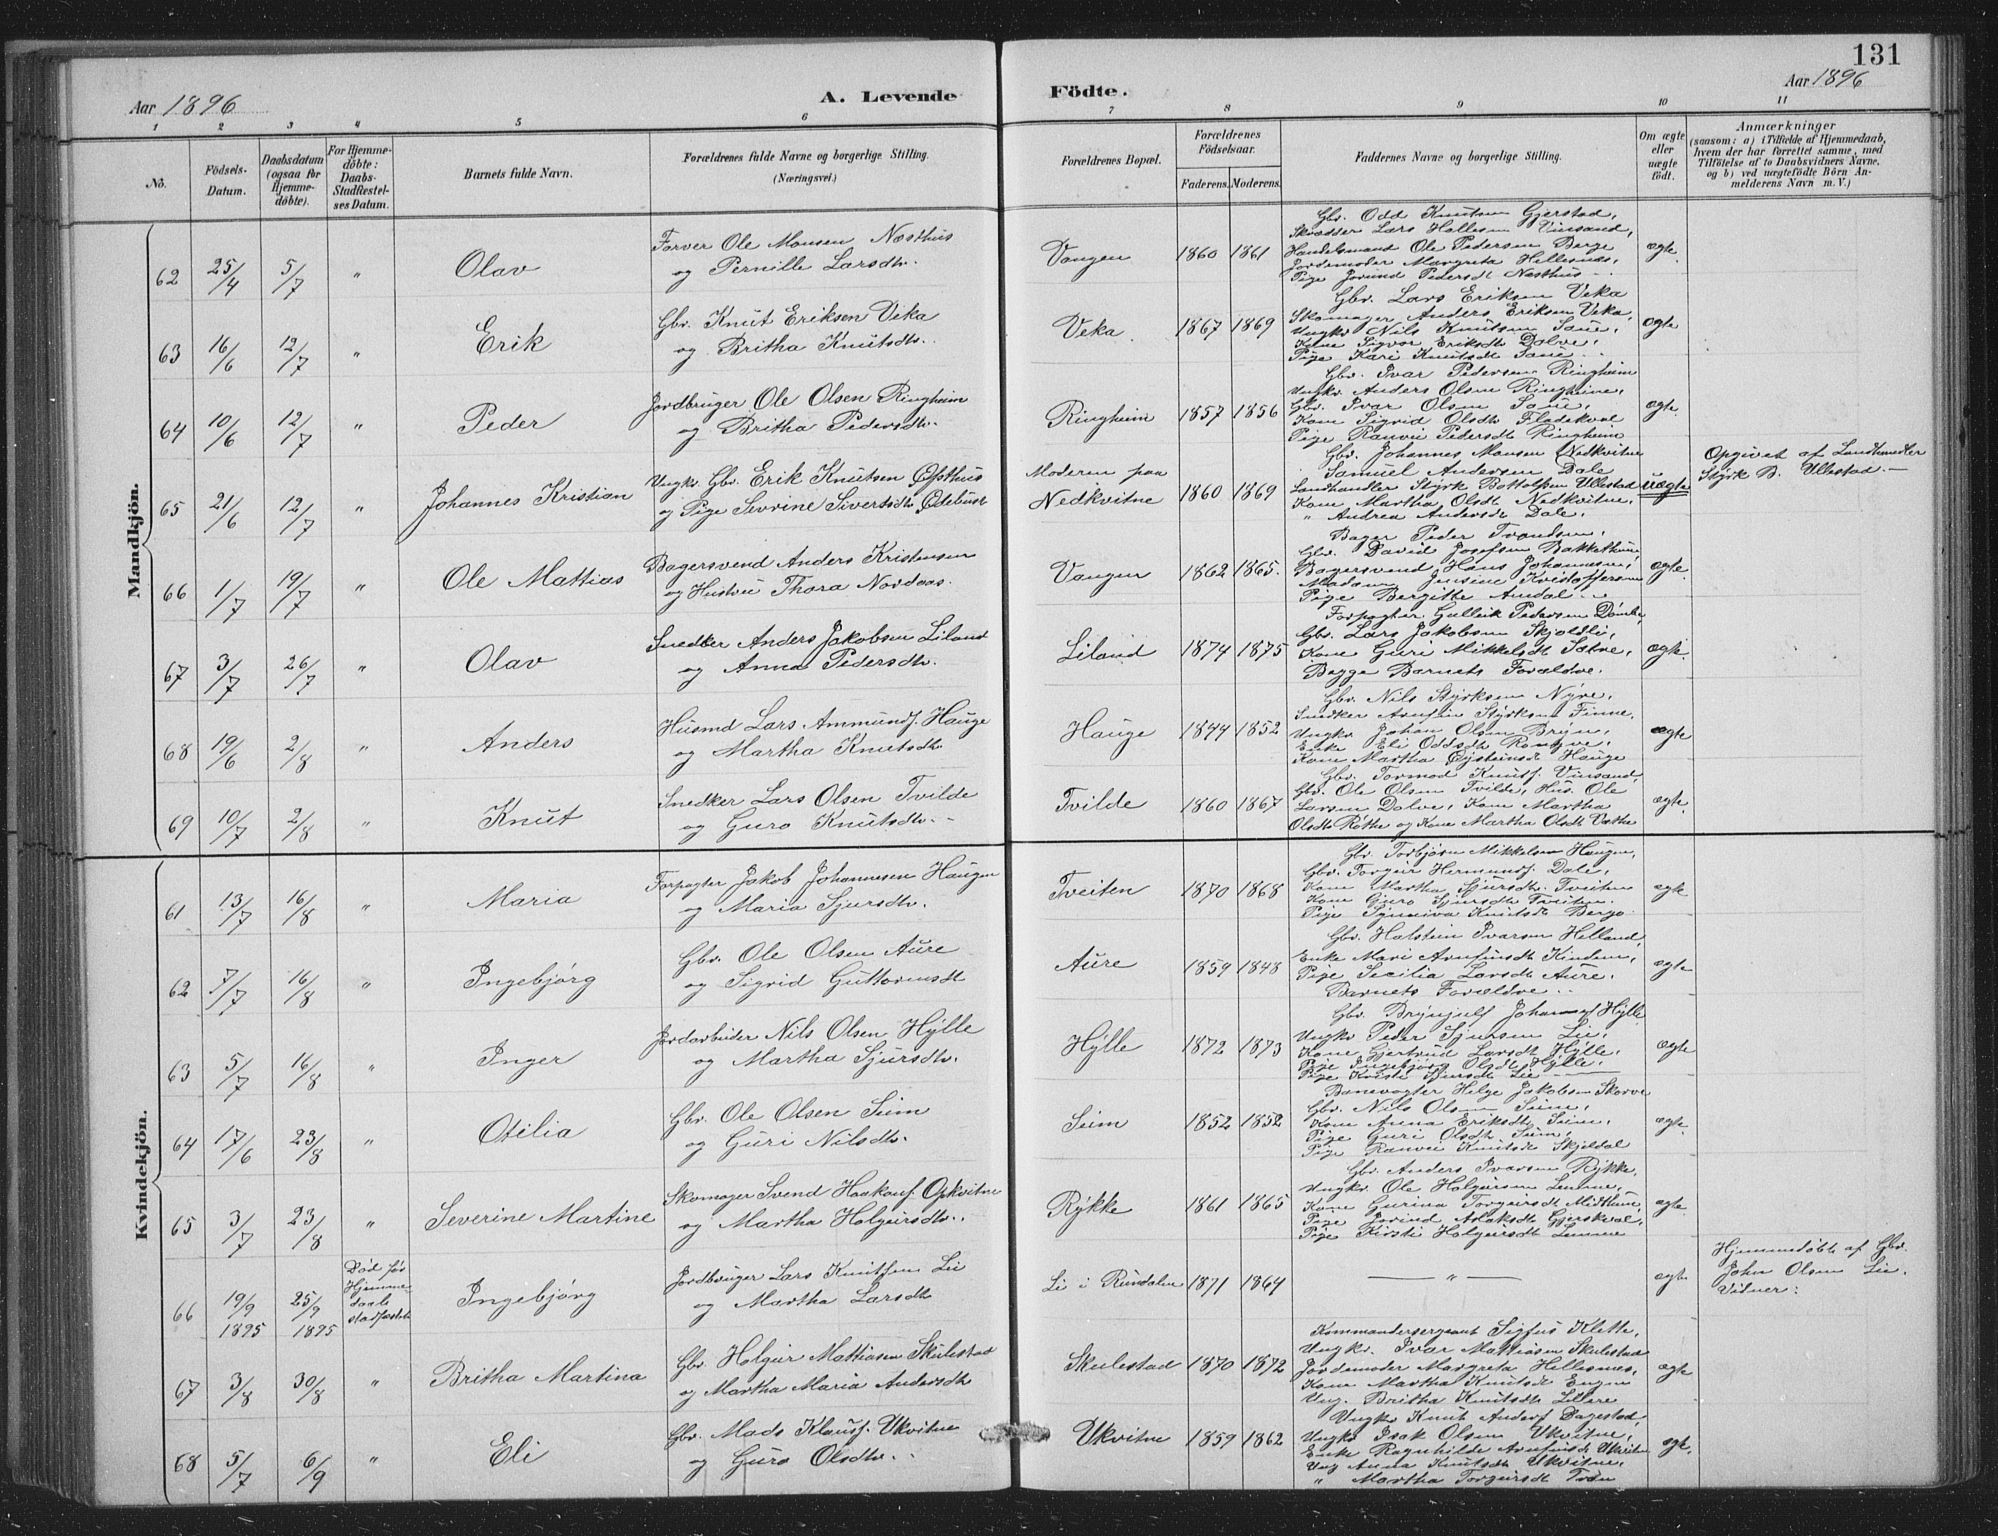 131
Aar 1896
A. Levende
Födte.
Aar 1896
1 2 3 4 5 6 7 8 9 10 11
No.
Födsels-
Datum.
Daabsdatum
(ogsaa for
Hjemme-
döbte).
For Hjemme-
döbte:
Daabs-
Stadfæstel-
ses Datum.
Barnets fulde Navn.
Forældrenes fulde Navne og borgerlige Stilling.
(Næringsvei.)
Forældrenes Bopæl.
Forældrenes
Födselsaar.
Faderens. Moderens.
Faddernes Navne og borgerlige Stilling.
Om ægte
eller
uægte
födt.
Anmærkninger
(saasom: a) i Tilfælde af Hjemmedaab,
hvem der har forrettet samme, med
Tilföielse af to Daabsvidners Navne,
og b) ved uægtefödte Börn An-
melderens Navn m. V.)
Mandkjön.
62 25/4 5/7 " Olav
Farver Ole Monsen Næsthus
og Pernille Larsdtr.
Vangen 1860 1861
Gbr. Odd Knutsen Gjerstad,
Skrædder Lars Hallesen Vinsand,
Handelsmand Ole Pedersen Berge
Jordemoder Margreta Hellesnæs,
Pige Jorund Pedersdt Næsthus
ægte.
63 16/6 12/7 " Erik
Gbr. Knut Eriksen Veka
og Britha Knutsdtr.
Veka. 1867 1869
Gbr. Lars Eriksen Veka
Skomager Anders Eriksen Veka,
Ungkr Nils Knutsen Saue,
Kone Sigvor Eriksdt Dolve,
Pige Kari Knutsdt Saue
ægte
64 10/6 12/7 " Peder
Jordbruger Ole Olsen Ringheim
og Britha Pedersdtr.
Ringheim 1857 1856
Gbr. Ivar Pedersen Ringheim
Ungkr. Anders Olsen Ringheim,
Gbr. Ivar Olsen Saue,
Kone Sigrid Olsdtr Fladekval
Pige Ranvei Pedersdt Ringheim
ægte.
65 21/6 12/7 " Johannes Kristian
Ungkr Gbr. Erik Knutsen Østhus
og Pige Sevrine Sivertsdtr
Moderen paa
Nedkvitne 1860 1869
Gbr. Johannes Monsen Nedkvitne
Samuel Andersen Dale
Landhandler Styrk Bottolfsen Ullestad
Kone Martha Olsdt Nedkvitne,
" Andrea Andersdt Dale.
uægte
Opgivet af Landhandler
Styrk B. Ullestad.
66 1/7 19/7 " Ole Mattias
Bagersvend Anders Kristensen
og Hustru Thora Nordaas.
Vangen 1862 1865.
Bager Peder Trondsen,
Gbr. David Josefsen Bakkethun,
Bagersvend Hans Johannesen,
Madam Jensine Kristoffersen
Pige Bergitte Amdal
ægte.
67 3/7 26/7 " Olav
Snedker Anders Jakobsen Liland
og Anna Pedersdtr.
Liland 1874 1875
Forpagter Gulleik Pedersen
Gbr. Lars Jakobsen Skjeldli,
Kone Guri Mikkelsdt Sætre,
Begge Barnets Forældre.
ægte.
68 19/6 2/8 " Anders
Husmd Lars Ammundf. Hauge
og Martha Knutsdtr
Hauge 1844 1852
Gbr. Nils Styrksen Nyre,
Snedker Arnfin Styrksen Finne,
Ungkr Johan Olsen Bryn,
Enke Eli Oddsdt
Kone Martha Øysteinsdt Hauge
ægte
69 10/7 2/8 " Knut
Snedker Lars Olsen Tvilde
og Guro Knutsdtr.
Tvilde 1860 1867
Gbr. Tormod Knutf. Vinsand,
Gbr. Ole Olsen Tvilde, Hus. Ole
Larsen Dolve, Kone Martha
Olsdt Röthe og Kone Martha Olsdt Væthe
ægte.
Kvindekjön.
61 13/7 16/8 " Maria
Forpagter Jakob Johannesen Haugen
og Maria Sjursdtr.
Tveiten 1870 1868
Gbr. Torbjörn Mikkelsen Haugen,
Gbr. Torgeir Hermundf. Dale,
Kone Martha Sjursdtr. Tveiten
Kone Guro Sjursdtr Tveiten.
Pige Synniva Knutsdt Bergo
ægte
62 7/7 16/8 " Ingebjörg
Gbr. Ole Olsen Aure
og Sigrid Guttormsdt
Aure 1859 1848
Gbr. Halstein Ivarsen Helland,
Enke Mari Arnfinsdt Kindem,
Pige Secilia Larsdt Aure.
Barnets Forældre
ægte
63 5/7 16/8 " Inger
Jordarbeider Nils Olsen Hylle
og Martha Sjursdtr.
Hylle 1872 1873
Gbr. Brynjulf Johannesf Hylle
Ungkr Peder Sjursen Lie,
Kone Gjertrud Larsdt Hylle,
Pige Ingebjörg Olsdt Hylle,
Pige Kristi Sjursdt Lie
ægte
64 17/6 23/8 " Otilia
Gbr. Ole Olsen Seim
og Guri Nilsdtr.
Seim 1852 1852
Banevogter Helge Jakobsen Skorve
Gbr. Nils Olsen Seim,
Kone Anna Eriksdt Seim,
Pige Guri Olsdt Seim,
Pige Ranvei Knutsdt Skjeldal
ægte.
65 3/7 23/8 " Severine Martine
Skomager Svend Haakonf. Opkvitne
og Martha Holgeirsdtr.
Rykke 1861 1865
Gbr. Anders Ivarsen Rykke,
Ungkr. Ole Holgeirsen Lemme,
Kone Gurina Torgeirsdt Midthun,
Pige Jorind Aslaksdt Gjerskval,
Pige Kirsti Holgeirsdt Lemme
ægte.
66 19/9 1895 25/9 1895
Död för
Hjemme-
daabs
stadfæstelse
Ingebjörg
Jordbruger Lars Knutsen Lie
og Martha Larsdtr
Li i Rundalen 1871 1864
"
ægte
Hjemmedöbt af Gbr.
John Olsen Lie.
Vidner:
67 3/8 30/8 " Britha Martina
Gbr. Holgeir Mattiasen Skulestad
og Martha Maria Andersdtr
Skulestad 1870 1872
Kommandersergeant Sigfus Klette,
Ungkr. Ivar Mattiasen Skulestad
Jordemoder Margreta Hellesnæs,
Kone Martha Knutsdt
Ung. Britha Knutsdt
ægte
68 5/7 6/9 " Eli
Gbr. Mads Klausf. Ukvitne
og Guro Olsdtr.
Ukvitne 1859 1862
Ungkr Knut Andersf Dagestad,
Ungkr Isak Olsen Ukvitne,
Enke Ragnhilde Arnfinsdt Ukvitne
Ung Anna Knutsdt Ukvitne,
" Martha Torgeirsdt Tron
ægte.